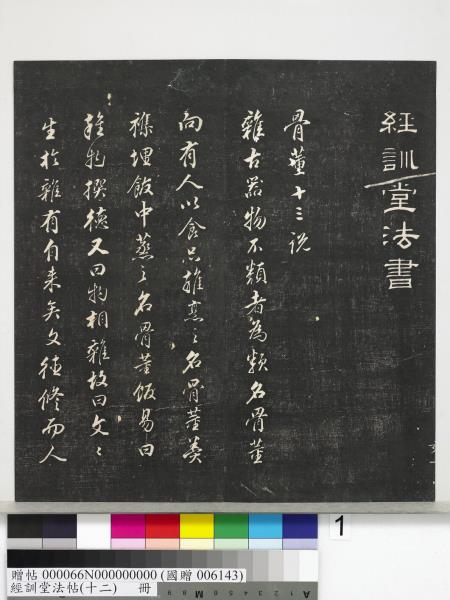 經訓堂法書
骨董十三說
雜古器物不類者為類名骨董
向有人以食品雜烹之名骨董羹
襍埋飯中蒸之名骨董飯易曰
雜物撰德又曰物相雜故曰文〻
生於雜有自来矣文德修而人
1
贈帖 000066N000000000 (國贈 006143)
經訓堂法帖(十二) 冊